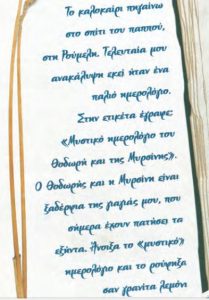 Το καλοκαίρι πηγαίνω
στο σπίτι του παππού,
στη Ρούμελη. Τελευταία μου
ανακάλυψη εκεί ήταν ένα
παλιό ημερολόγιο.
Στην ετικέτα έγραφε:
«Μυστικό ημερολόγιο του
Θοδωρή και της Μυρσίνης».
Ο Θοδωρής και η Μυρσίνη είναι
ξαδέρφια της γιαγιάς μου, που
σήμερα έχουν πατήσει τα
εξήντα. Άνοιξα το «μυστικό»
ημερολόγιο και το ρούφηξα
σαν γρανίτα λεμόνι